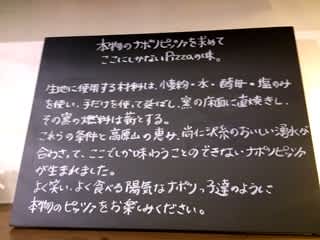 本物のナポリピッツァを求めて
ここにしかないPizzaの味。
生地に使用する材料は、小麦粉・水・酵母・塩のみ
を使い、手だけを使って延ばし、窯の床面に直焼きし、
その窯の燃料は薪とする。
これらの条件と高原山の恵み、尚仁沢系のおいしい湧水が
合わさって、ここでしか味わうことのできないナポリピッツァ
が生まれました。
よく笑い、よく食べる陽気なナポリっ子達のように
本物のピッツァをお楽しみください。